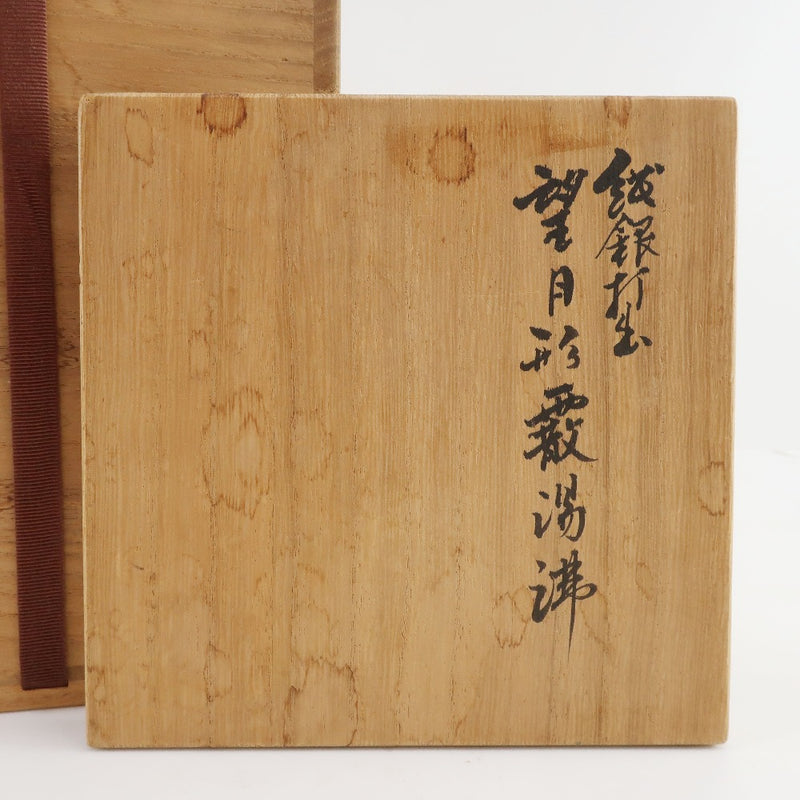 純銀打出
望月形霰湯沸